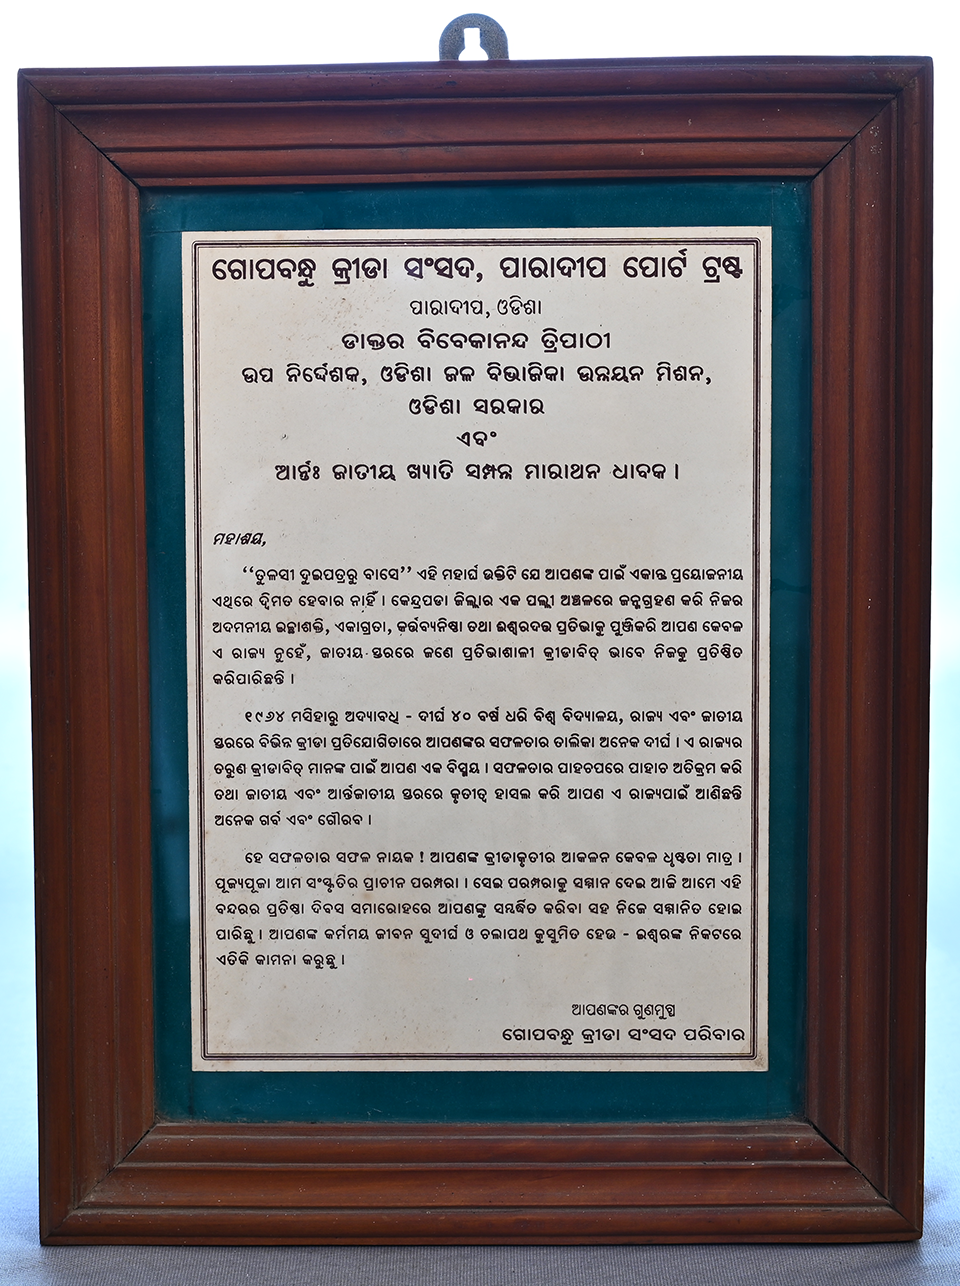 ଗୋପବନ୍ଧୁ କ୍ରୀଡା ସଂସଦ, ପାରାଦୀପ ପୋର୍ଟ ଟ୍ରଷ୍ଟ
ପାରାଦୀପ, ଓଡିଶା
ଡାକ୍ତର ବିବେକାନନ୍ଦ ତ୍ରିପାଠୀ
ଉପ ନିର୍ଦ୍ଦେଶକ, ଓଡିଶା ଜଳ ବିଭାଜିକା ଉନ୍ନୟନ ମିଶନ,
ଓଡିଶା ସରକାର
ଏବଂ
ଆର୍ନ୍ତଃ ଜାତୀୟ ଖ୍ୟାତି ସମ୍ପନ୍ନ ମାରାଥନ ଧାବକ ।
ମହାଶୟ,
‘‘ତୁଳସୀ ଦୁଇପତ୍ରରୁ ବାସେ’’ ଏହି ମହାର୍ଘ ଉକ୍ତିଟି ଯେ ଆପଣଙ୍କ ପାଇଁ ଏକାନ୍ତ ପ୍ରୟୋଜନୀୟ
ଏଥିରେ ଦ୍ୱିମତ ହେବାର ନାହିଁ । କେନ୍ଦ୍ରପଡା ଜିଲ୍ଲାର ଏକ ପଲ୍ଲୀ ଅଞ୍ଚଳରେ ଜନ୍ମଗ୍ରହଣ କରି ନିଜର
ଅଦମନୀୟ ଇଚ୍ଛାଶକ୍ତି, ଏକାଗ୍ରତା, କର୍ତ୍ତବ୍ୟନିଷ୍ଠା ତଥା ଈଶ୍ୱରଦତ୍ତ ପ୍ରତିଭାକୁ ପୁଞ୍ଜିକରି ଆପଣ କେବଳ
ଏ ରାଜ୍ୟ ନୁହେଁ, ଜାତୀୟ ସ୍ତରରେ ଜଣେ ପ୍ରତିଭାଶାଳୀ କ୍ରୀଡାବିତ୍ ଭାବେ ନିଜକୁ ପ୍ରତିଷ୍ଠିତ
କରିପାରିଛନ୍ତି ।
୧୯୬୪ ମସିହାରୁ ଅଦ୍ୟାବଧି - ଦୀର୍ଘ ୪୦ ବର୍ଷ ଧରି ବିଶ୍ୱ ବିଦ୍ୟାଳୟ, ରାଜ୍ୟ ଏବଂ ଜାତୀୟ
ସ୍ତରରେ ବିଭିନ୍ନ କ୍ରୀଡା ପ୍ରତିଯୋଗିତାରେ ଆପଣଙ୍କର ସଫଳତାର ତାଲିକା ଅନେକ ଦୀର୍ଘ । ଏ ରାଜ୍ୟର
ତରୁଣ କ୍ରୀଡାବିତ୍ ମାନଙ୍କ ପାଇଁ ଆପଣ ଏକ ବିସ୍ମୟ । ସଫଳତାର ପାହଚପରେ ପାହାଚ ଅତିକ୍ରମ କରି
ତଥା ଜାତୀୟ ଏବଂ ଆର୍ନ୍ତଜାତୀୟ ସ୍ତରରେ କୃତୀତ୍ୱ ହାସଲ କରି ଆପଣ ଏ ରାଜ୍ୟପାଇଁ ଆଣିଛନ୍ତି
ଅନେକ ଗର୍ବ ଏବଂ ଗୌରବ ।
ହେ ସଫଳତାର ସଫଳ ନାୟକ ! ଆପଣଙ୍କ କ୍ରୀଡାକୃତୀର ଆକଳନ କେବଳ ଧୃଷ୍ଟତା ମାତ୍ର ।
ପୂଜ୍ୟପୂଜା ଆମ ସଂସ୍କୃତିର ପ୍ରାଚୀନ ପରମ୍ପରା । ସେଇ ପରମ୍ପରାକୁ ସମ୍ମାନ ଦେଇ ଆଜି ଆମେ ଏହି
ବନ୍ଦରର ପ୍ରତିଷ୍ଠା ଦିବସ ସମାରୋହରେ ଆପଣଙ୍କୁ ସମ୍ବର୍ଦ୍ଧିତ କରିବା ସହ ନିଜେ ସମ୍ମାନିତ ହୋଇ
ପାରିଛୁ । ଆପଣଙ୍କ କର୍ମମୟ ଜୀବନ ସୁଦୀର୍ଘ ଓ ଚଲାପଥ କୁସୁମିତ ହେଉ - ଇଶ୍ୱରଙ୍କ ନିକଟରେ
ଏତିକି କାମନା କରୁଛୁ ।
ଆପଣଙ୍କର ଗୁଣମୁଗ୍ଧ
ଗୋପବନ୍ଧୁ କ୍ରୀଡା ସଂସଦ ପରିବାର